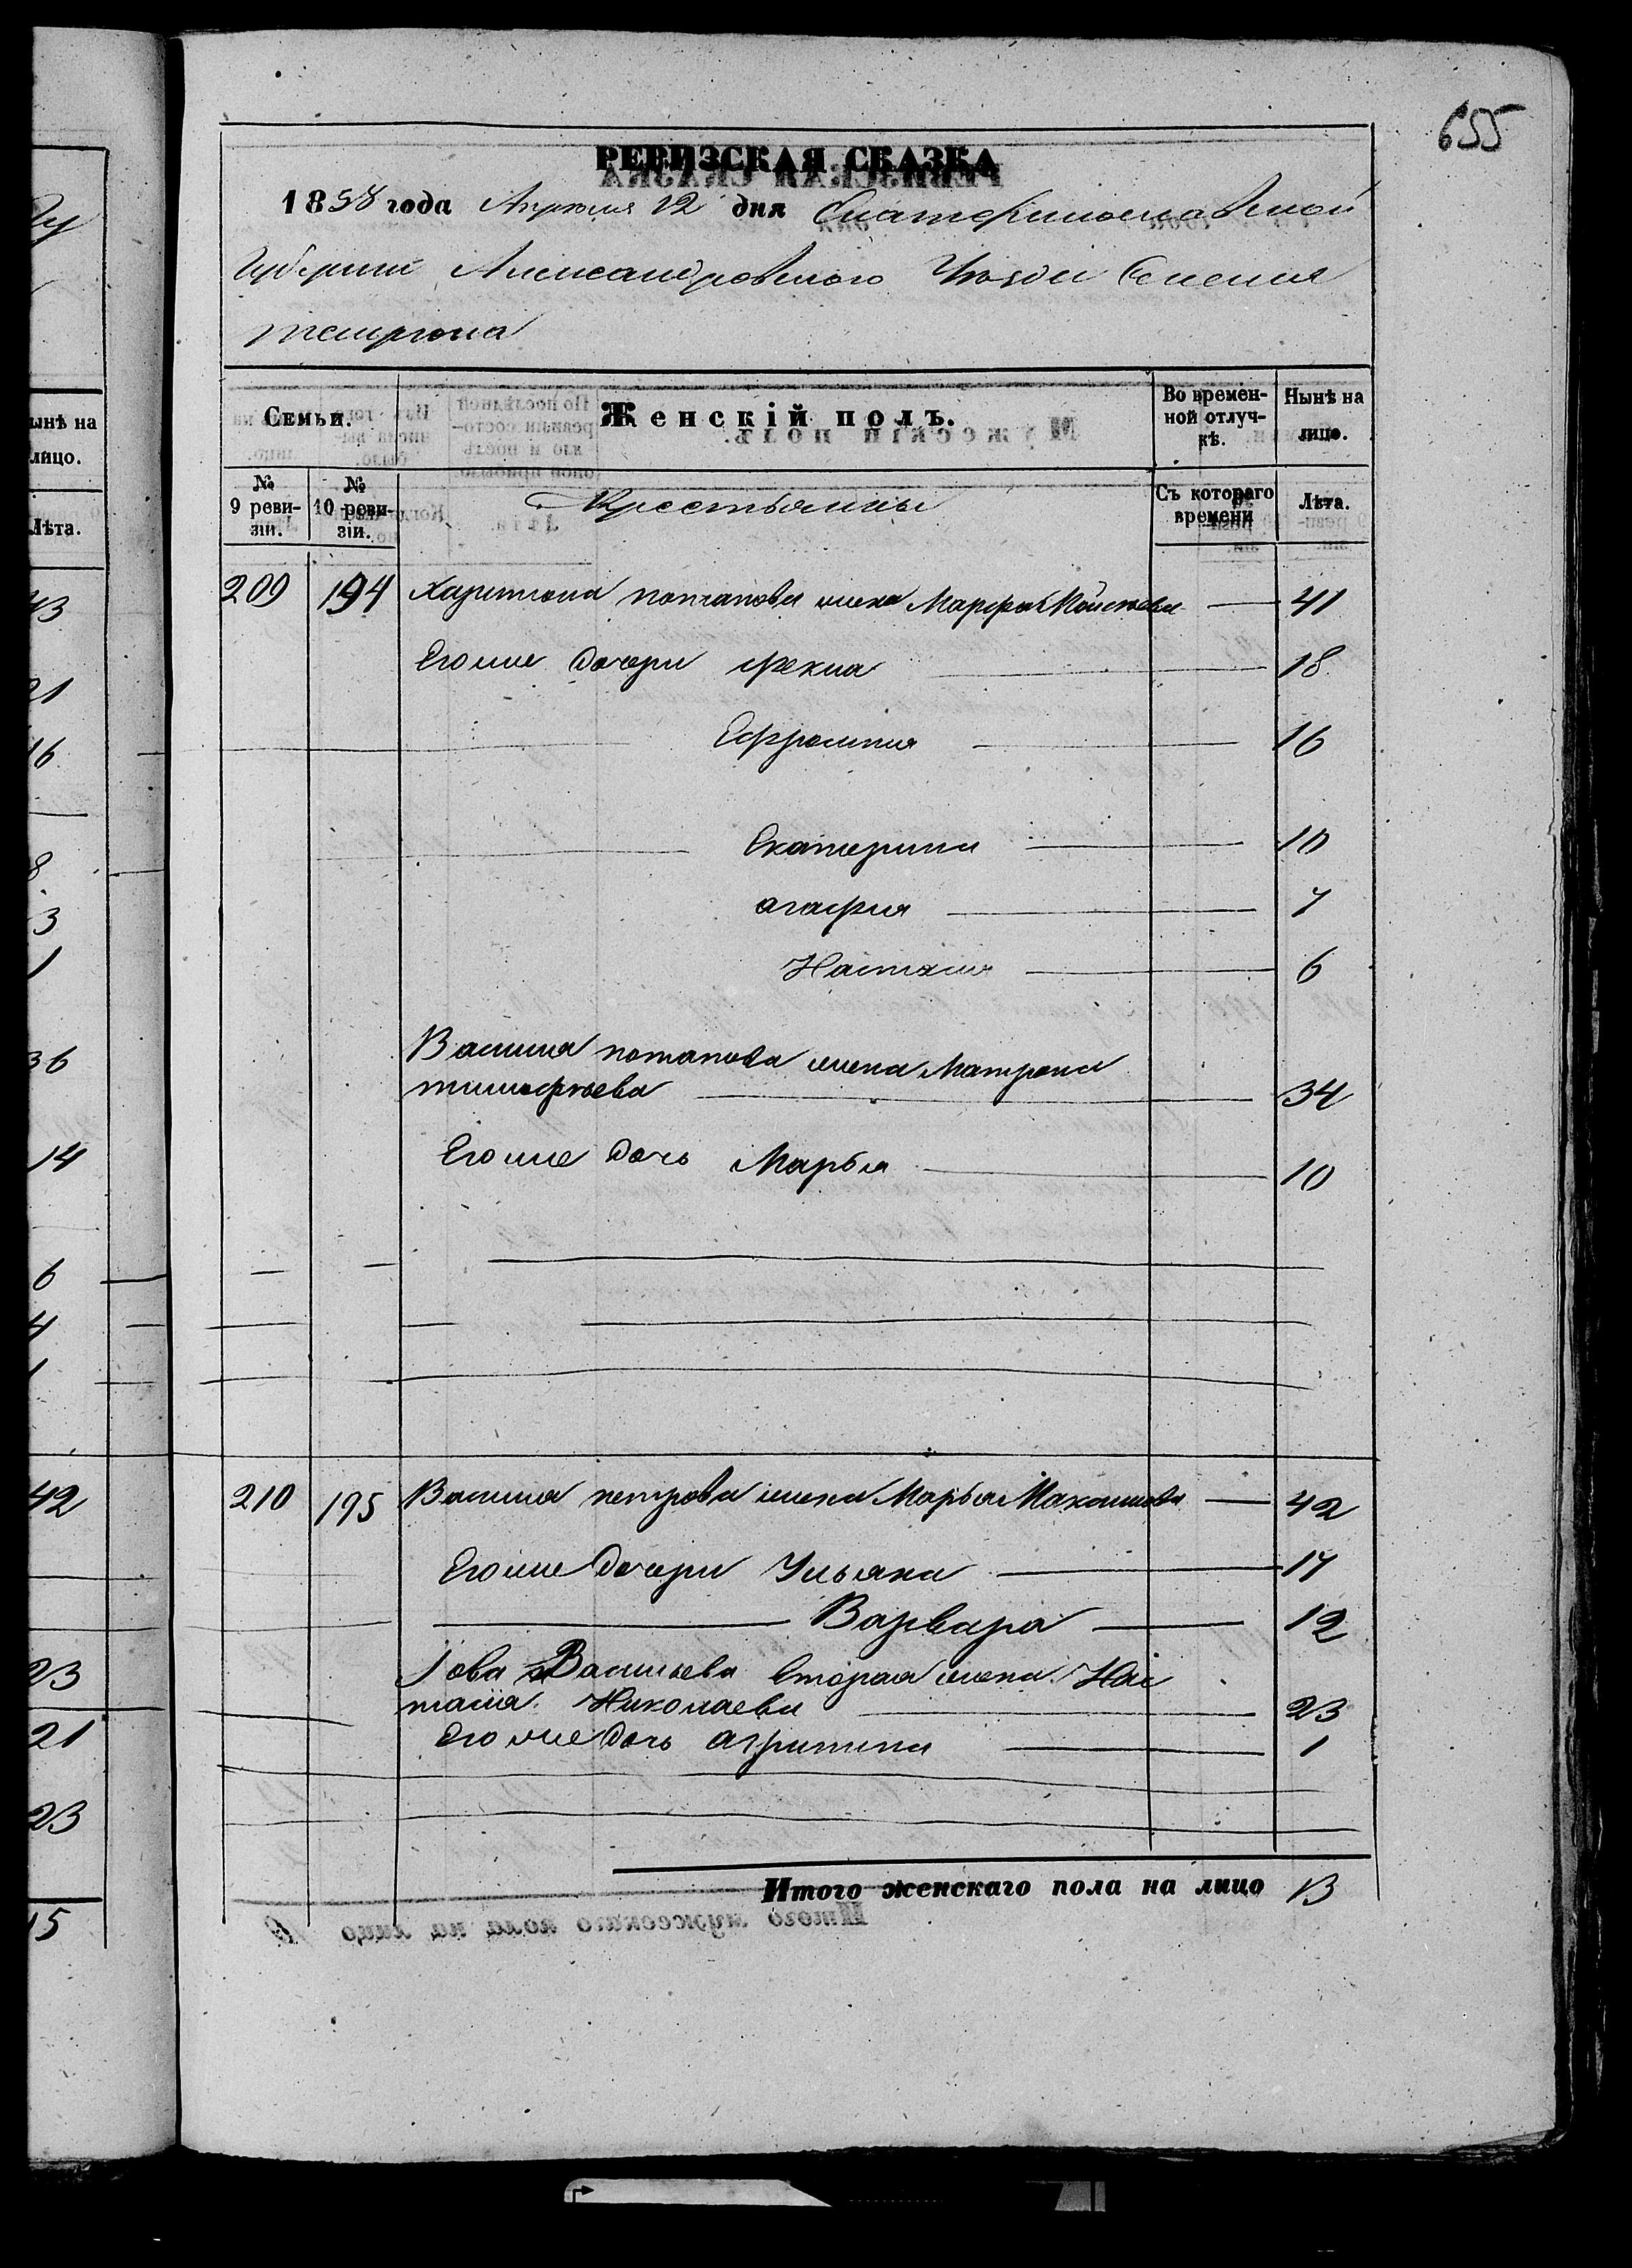 655
РЕВИЗСКАЯ СКАЗКА
1858 года Апреля 12 дня Екатеринославской
Губернии Александровского Уезда Селения
темрюка
Семьи.
Женскій полъ.
Во времен-
ной отлуч-
кѣ.
Нынѣ на
лицо.
№
9 реви-
зіи.
№
10 реви-
зіи.
Крестьянины
Съ котораго
времени
Лѣта.
209 194 Харитона потапова жена Марфа Моисѣева 41
Его же дочери Фекла 18
Ефросиния 16
Екатерина 10
агафия 7
Настасия 6
Василия потапова жена Матрона
тимофѣева 34
Его же дочь Марья 10
210 195 Василия петрова жена Марья Максимова 42
Его же дочери Ульяна 17
Варвара 12
Іова Васильева вторая жена Нас
тасия Николаева 23
Его же дочь агрипина 1
Итого женскаго пола на лицо 13
ынѣ на
лицо.
Лѣта.
43
21
16
8
3
1
36
14
6
4
1
42
23
21
23
15